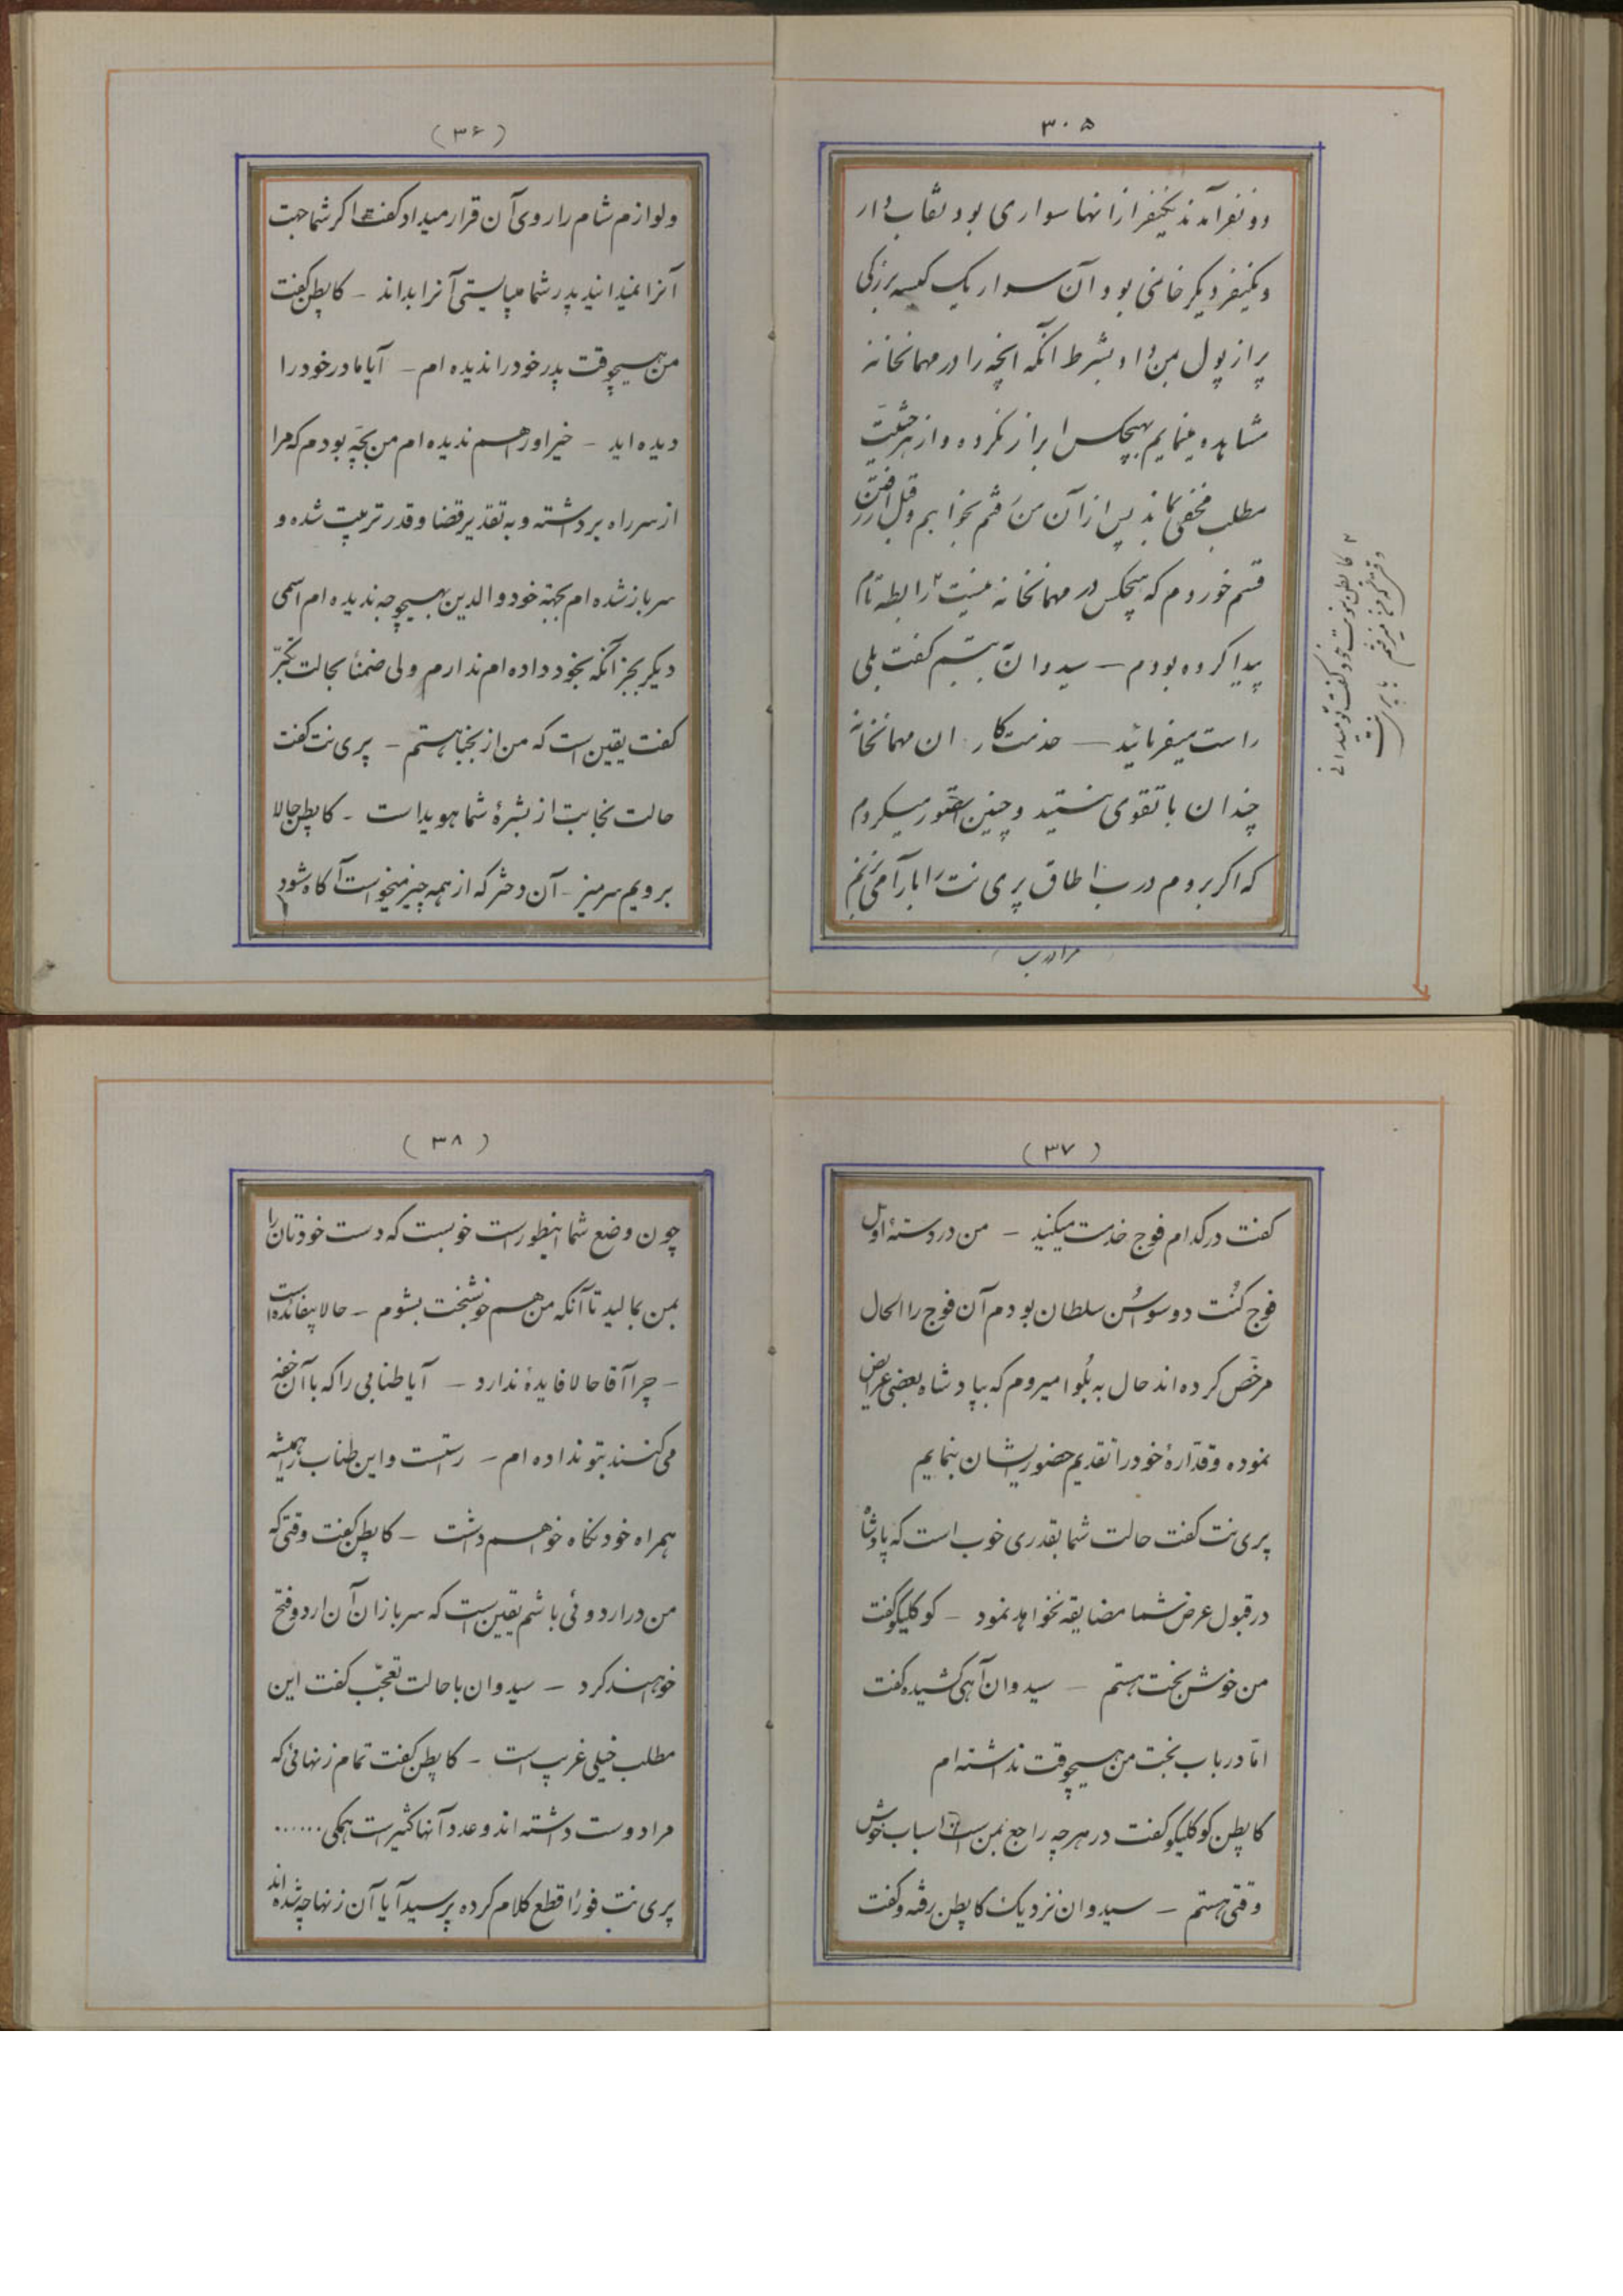 ۳۰۵
دو نفر آمدند یکنفر از آنها سواری بود نقاب دار
و یکنفر دیکر خانمی بود و آن سوار یک کیسه بزرکی
پر از پول بمن داد بشرط آنکه آنچه را در مهمانخانه
مشاهده مینمایم بهیچکس ابراز نکرده و از هر حیثیت
مطلب مخفی بماند پس از آن من رفتم بخوابم و قبل از رفتن
قسم خوردم که هیچکس در مهمانخانه نیست ۲ رابطه تام
پیدا کرده بودم – سیدوان بتبسم کفت بلی
راست میفرمائید – خدمتکار ان مهمانخانه
چندان با تقوی نیستند و چنین تصور میکردم
که اکر بروم درب اطاق پری نت را بآرامی بزنم
۲ کاپطن کفت تو میدانی
مرا درب
(۳۶)
و لوازم شام را روی آن قرار میداد کفت اکر شما جهت
آنرا نمیدانید پدر شما میبایستی آنرا بداند – کاپطن کفت
من هیچوقت پدر خود را ندیده ام – آیا مادر خود را
دیده اید – خیر او را هم ندیده ام من بچه بودم که مرا
از سر راه برداشته و به تقدیر قضا و قدر تربیت شده و
سرباز شده ام بجهة خود والدین بهیچوجه ندیده ام اسمی
دیکر بجز آنکه بخود داده ام ندارم ولی ضمناً بحالت تکبّر
کفت یقین است که من از نجبا هستم – پری نت کفت
حالت نجابت از بشرهٔ شما هویدا است – کاپطن حالا
برویم سر میز – آن دختر که از همه چیز میخواست آکاه شود
(۳۷)
کفت در کدام فوج خدمت میکنید – من در دستهٔ اول
فوج کُنت دو سواسُن سلطان بودم آن فوج را الحال
مرخّص کرده اند حال به بُلوا میروم که بپادشاه بعضی عرایض
نموده و قدّارهٔ خود را تقدیم حضور ایشان بنمایم
پری نت کفت حالت شما بقدری خوب است که پادشاه
در قبول عرض شما مضایقه نخواهد نمود – کوکلیکو کفت
من خوش بخت هستم – سیدوان آهی کشیده کفت
امّا در باب بخت من هیچوقت نداشته ام
کاپطن کوکلیکو کفت در هر چه راجع بمن است اسباب خوش
وقتی هستم – سیدوان نزدیک کاپطن رفته و کفت
(۳۸)
چون وضع شما اینطور است خوبست که دست خودتان را
بمن بمالید تا آنکه من هم خوشبخت بشوم – حالا بیفائده است
– چرا آقا حالا فایدهٔ ندارد – آیا طنابی را که با آن خفه
می کنند بتو نداده ام – راست است و این طناب را همیشه
همراه خود نکاه خواهم داشت – کاپطن کفت وقتی که
من در اردوئی باشم یقین است که سربازان آن اردو فتح
خواهند کرد – سیدوان با حالت تعجّب کفت این
مطلب خیلی غریب است – کاپطن کفت تمام زنهائی که
مرا دوست داشته اند و عدد آنها کثیر است همکی ......
پری نت فوراً قطع کلام کرده پرسید آیا آن زنها چه شده اند